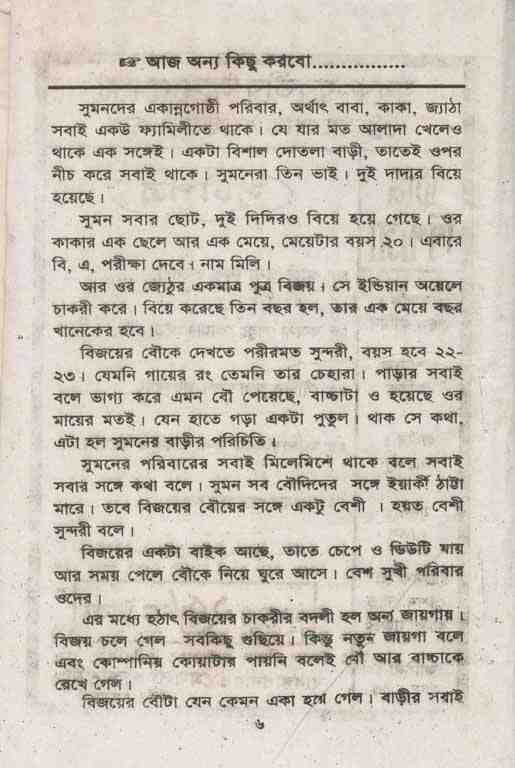 ☞ আজ অন্য কিছু করবো................
সুমনদের একান্নগোষ্ঠী পরিবার, অর্থাৎ বাবা, কাকা, জ্যাঠা
সবাই একউ ফ্যামিলীতে থাকে। যে যার মত আলাদা খেলেও
থাকে এক সঙ্গেই। একটা বিশাল দোতলা বাড়ী, তাতেই ওপর
নীচ করে সবাই থাকে। সুমনেরা তিন ভাই। দুই দাদার বিয়ে
হয়েছে।
সুমন সবার ছোট, দুই দিদিরও বিয়ে হয়ে গেছে। ওর
কাকার এক ছেলে আর এক মেয়ে, মেয়েটার বয়স ২০। এবারে
বি, এ, পরীক্ষা দেবে। নাম মিলি।
আর ওর জ্যেঠুর একমাত্র পুত্র বিজয়। সে ইন্ডিয়ান অয়েলে
চাকরী করে। বিয়ে করেছে তিন বছর হল, তার এক মেয়ে বছর
খানেকের হবে।
বিজয়ের বৌকে দেখতে পরীরমত সুন্দরী, বয়স হবে ২২-
২৩। যেমনি গায়ের রং তেমনি তার চেহারা। পাড়ার সবাই
বলে ভাগ্য করে এমন বৌ পেয়েছে, বাচ্চাটা ও হয়েছে ওর
মায়ের মতই। যেন হাতে গড়া একটা পুতুল। থাক সে কথা,
এটা হল সুমনের বাড়ীর পরিচিতি।
সুমনের পরিবারের সবাই মিলেমিশে থাকে বলে সবাই
সবার সঙ্গে কথা বলে। সুমন সব বৌদিদের সঙ্গে ইয়ার্কী ঠাট্টা
মারে। তবে বিজয়ের বৌয়ের সঙ্গে একটু বেশী । হয়ত বেশী
সুন্দরী বলে।
বিজয়ের একটা বাইক আছে, তাতে চেপে ও ডিউটি যায়
আর সময় পেলে বৌকে নিয়ে ঘুরে আসে। বেশ সুখী পরিবার
ওদের।
এর মধ্যে হঠাৎ বিজয়ের চাকরীর বদলী হল অন্য জায়গায়।
বিজয় চলে গেল সবকিছু গুছিয়ে। কিন্তু নতুন জায়গা বলে
এবং কোম্পানিয় কোয়াটার পায়নি বলেই বৌ আর বাচ্চাকে
রেখে গেল।
বিজয়ের বৌটা যেন কেমন একা হয়ে গেল। বাড়ীর সবাই
৬